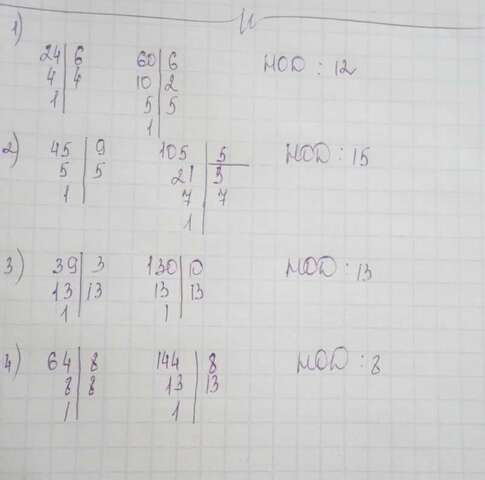 1)
24 | 6 60 | 6 НОД : 12
4 | 4 10 | 2
1 | 5 | 5
1
2) 45 | 9 105 | 5 НОД : 15
5 | 5 21 | 3
1 | 7 | 7
1
3) 39 | 3 130 | 10 НОД : 13
13 | 13 13 | 13
1 | 1 |
4) 64 | 8 144 | 8 НОД : 8
8 | 8 13 | 13
1 | 1 |